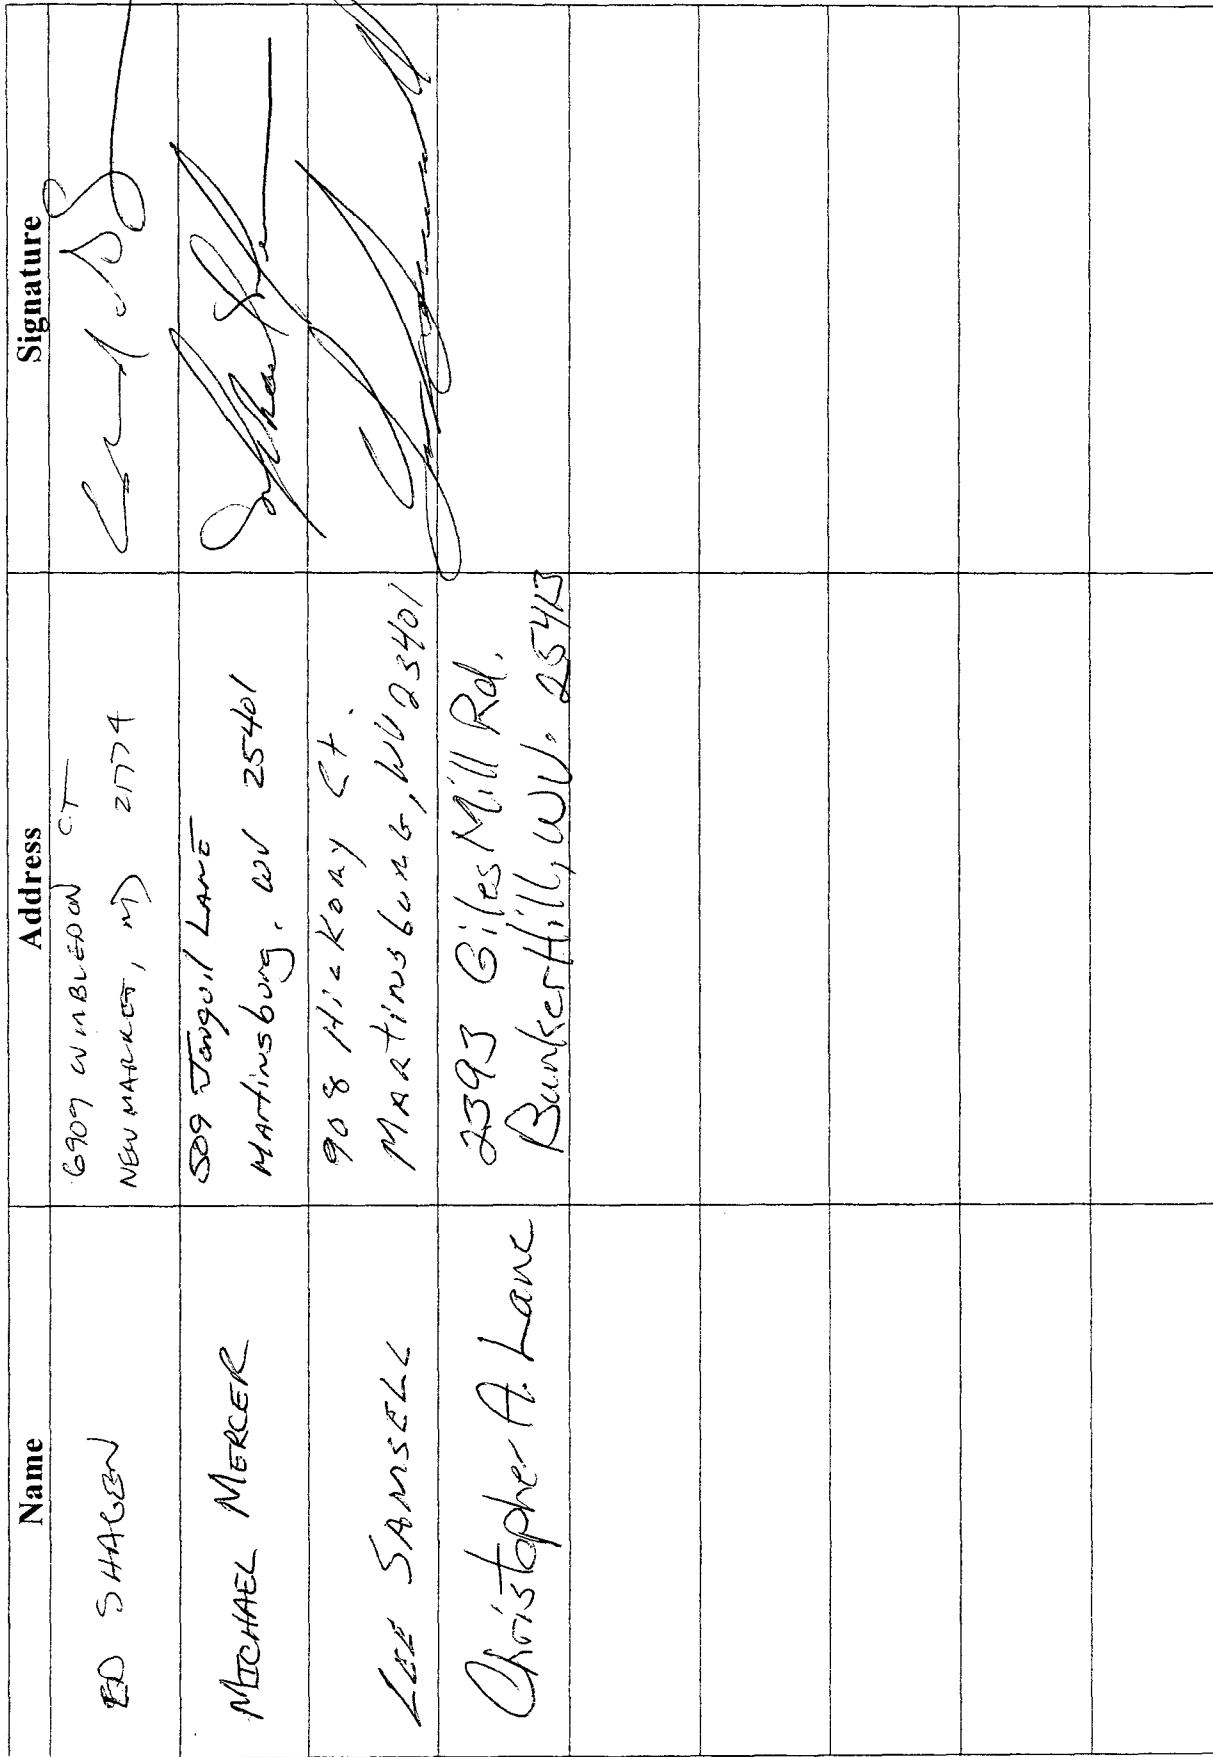 Name Address Signature
ED SHAGEN
6909 WIMBLEDON CT
NEW MARKET, MD 21774
MICHAEL MERCER
509 Jonquil LANE
Martinsburg, WV 25401
LEE SAMSELL
908 HicKORY Ct.
MARTINSBURG, WV 25401
Christopher A. Lane
2393 Giles Mill Rd.
Bunker Hill, WV. 25413